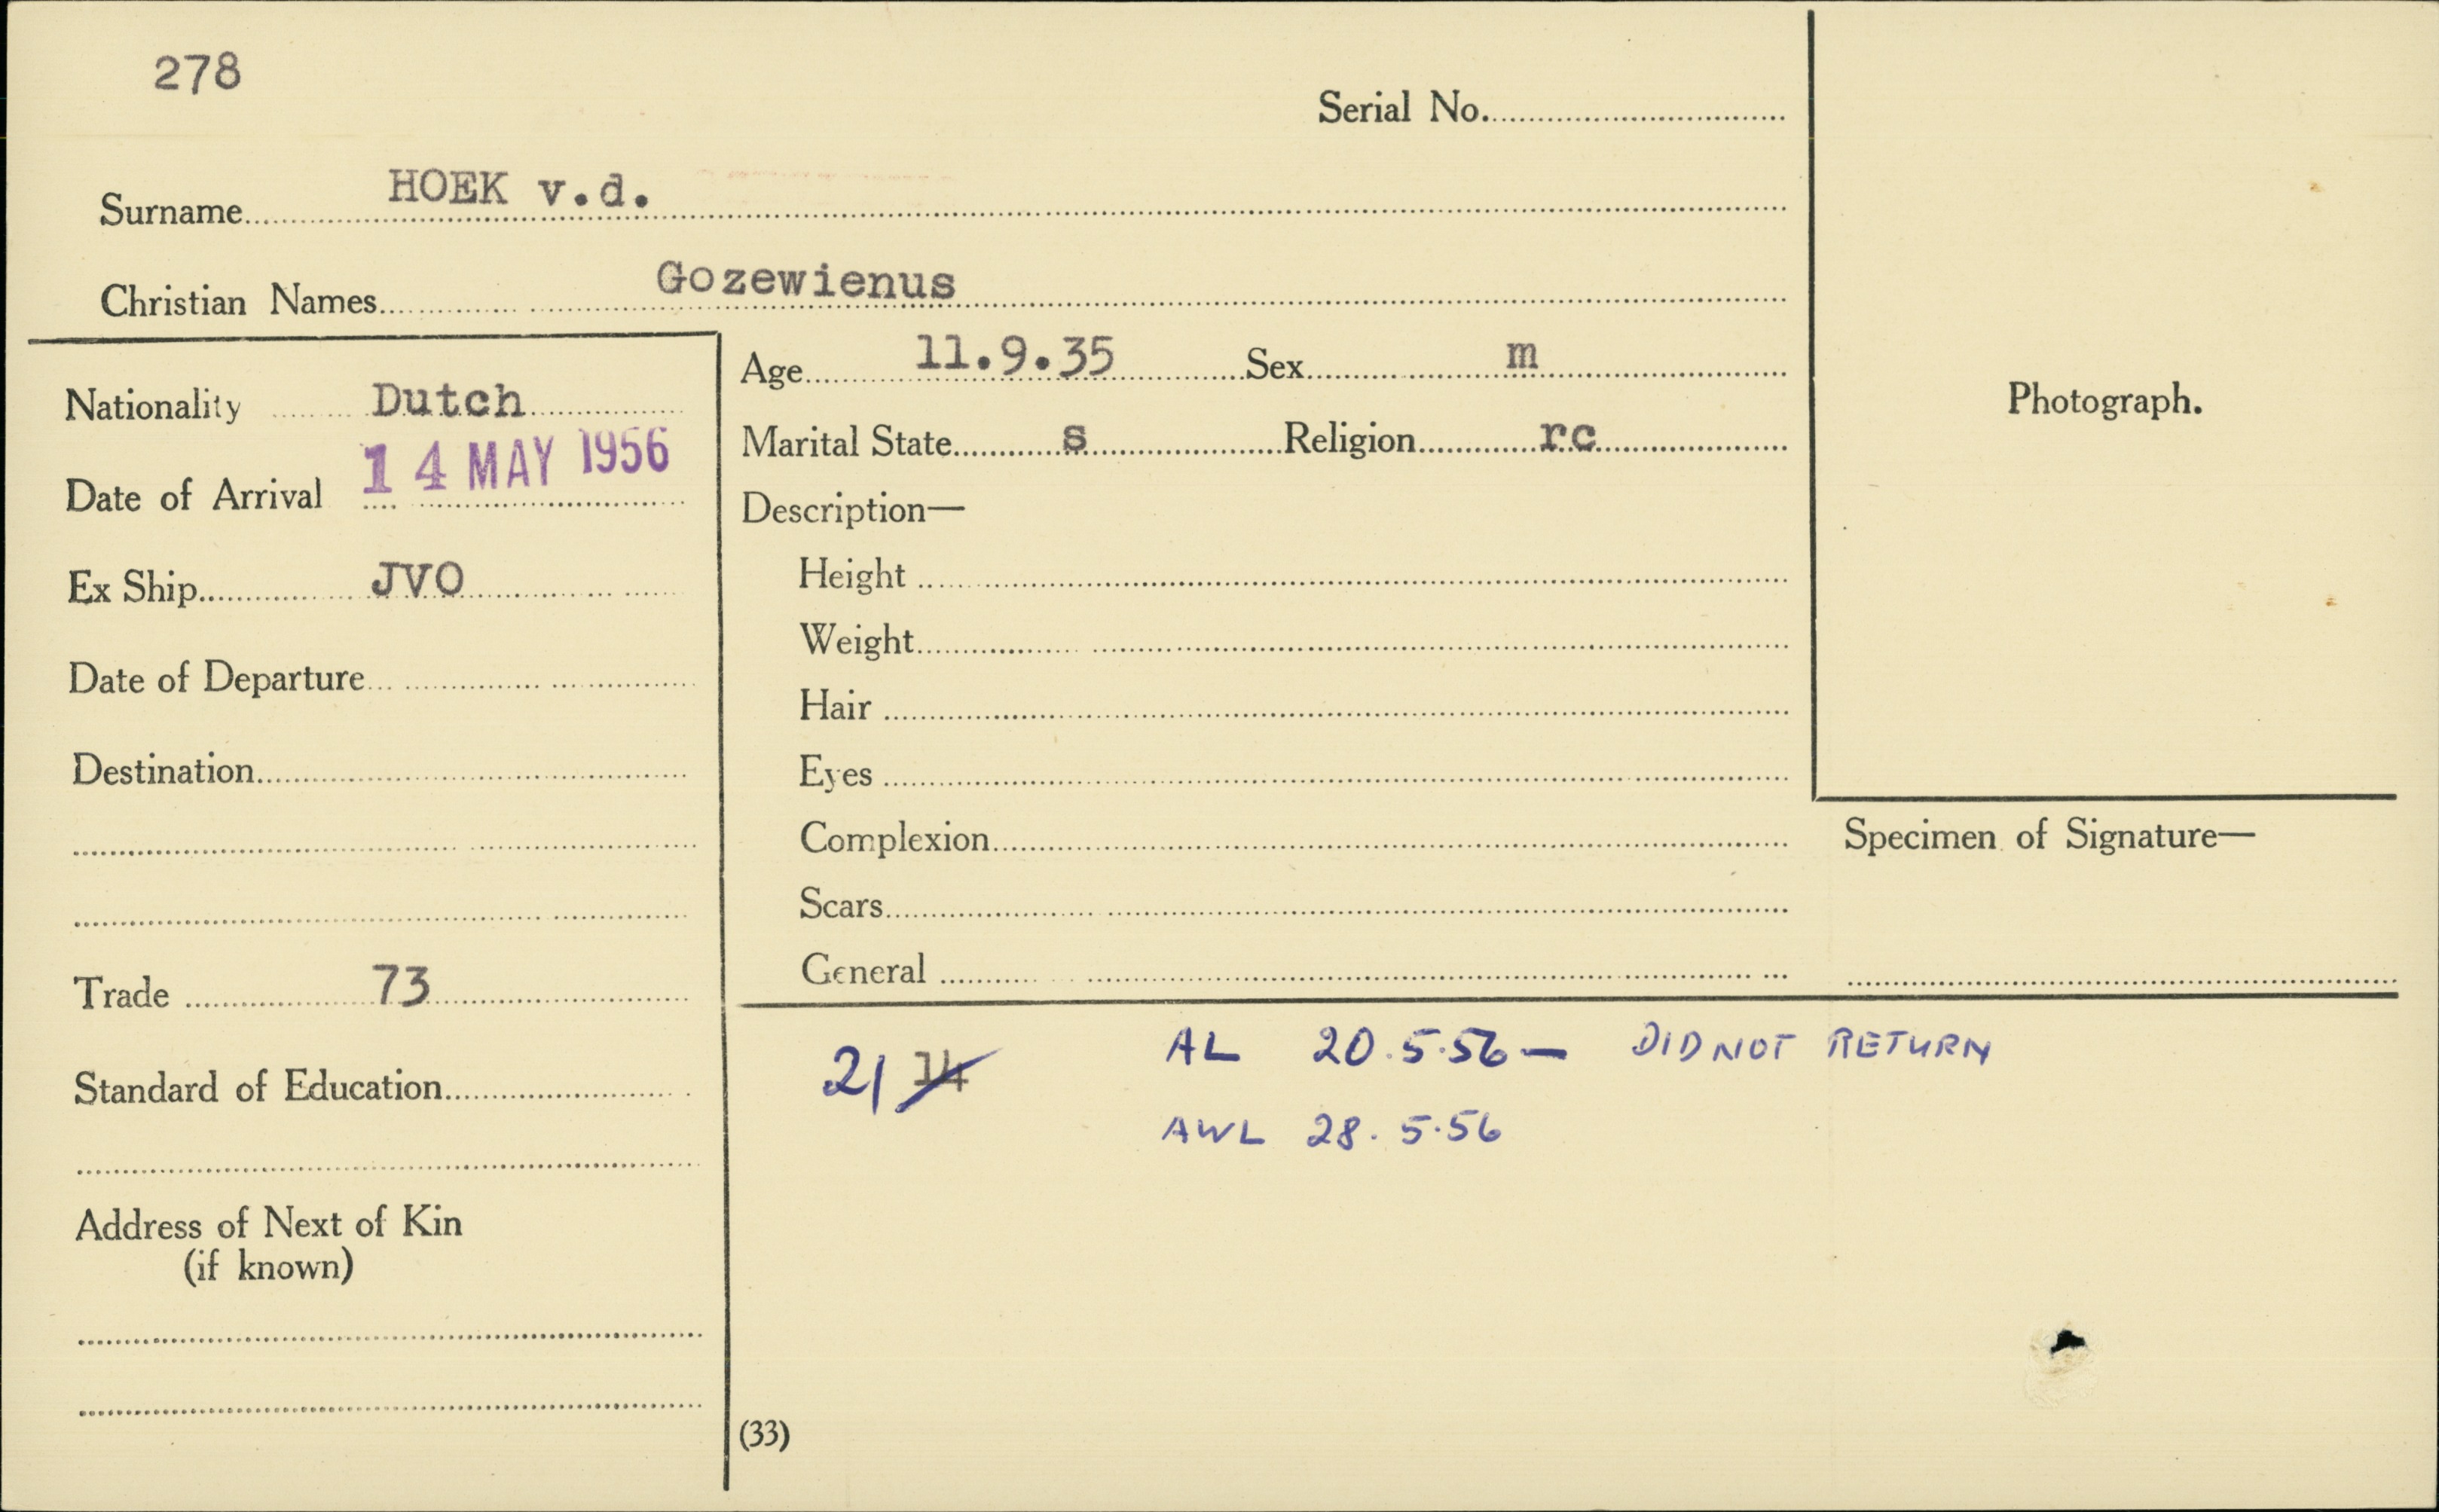 278
Serial No.
Surname HOEK v.d.
Christian Names Gozewienus
Nationality Dutch
Date of Arrival 14 MAY 1956
Ex Ship JVO
Date of Departure
Destination
Trade 73
Standard of Education
Address of Next of Kin
(if known)
Age 11.9.35 Sex m
Marital State s Religion rc
Description—
Height
Weight
Hair
Eyes
Complexion
Scars
General
Photograph.
Specimen of Signature—
21 14 AL 20.5.56 — DID NOT RETURN
AWL 28.5.56
(33)